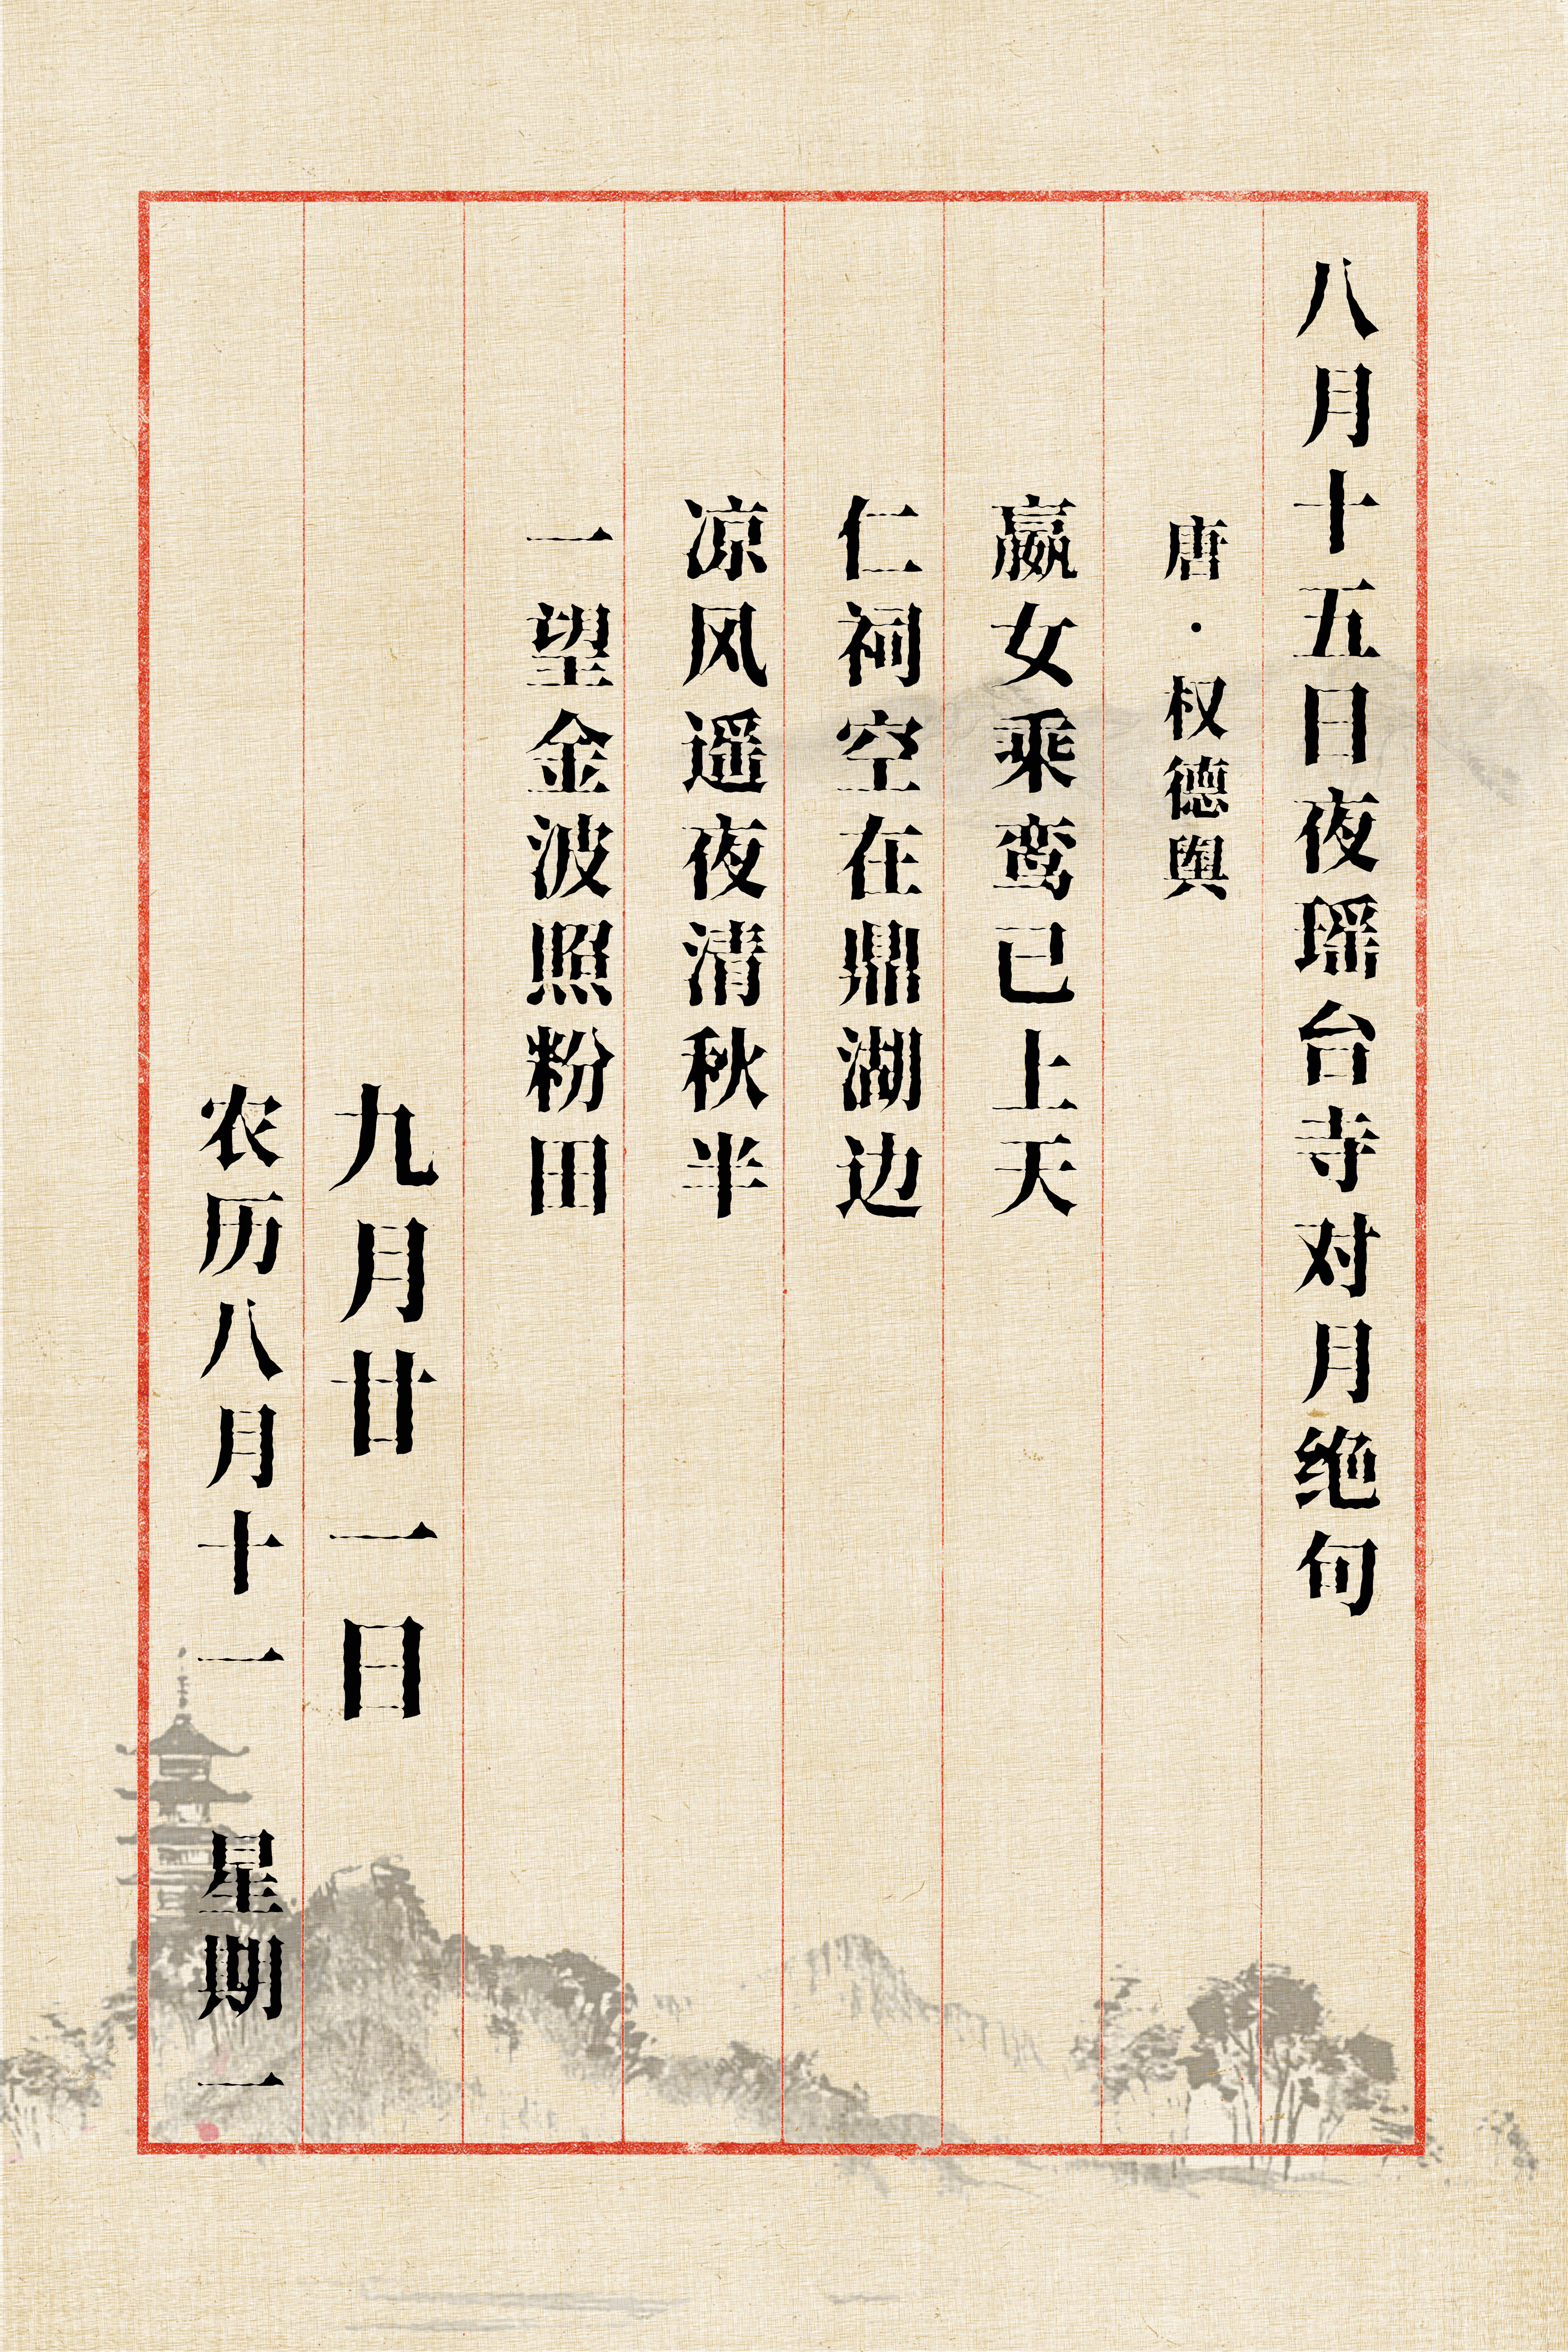 八月十五日夜瑶台寺对月绝句
唐·权德舆
嬴女乘鸾已上天
仁祠空在鼎湖边
凉风遥夜清秋半
一望金波照粉田
九月廿一日
农历八月十一 星期一